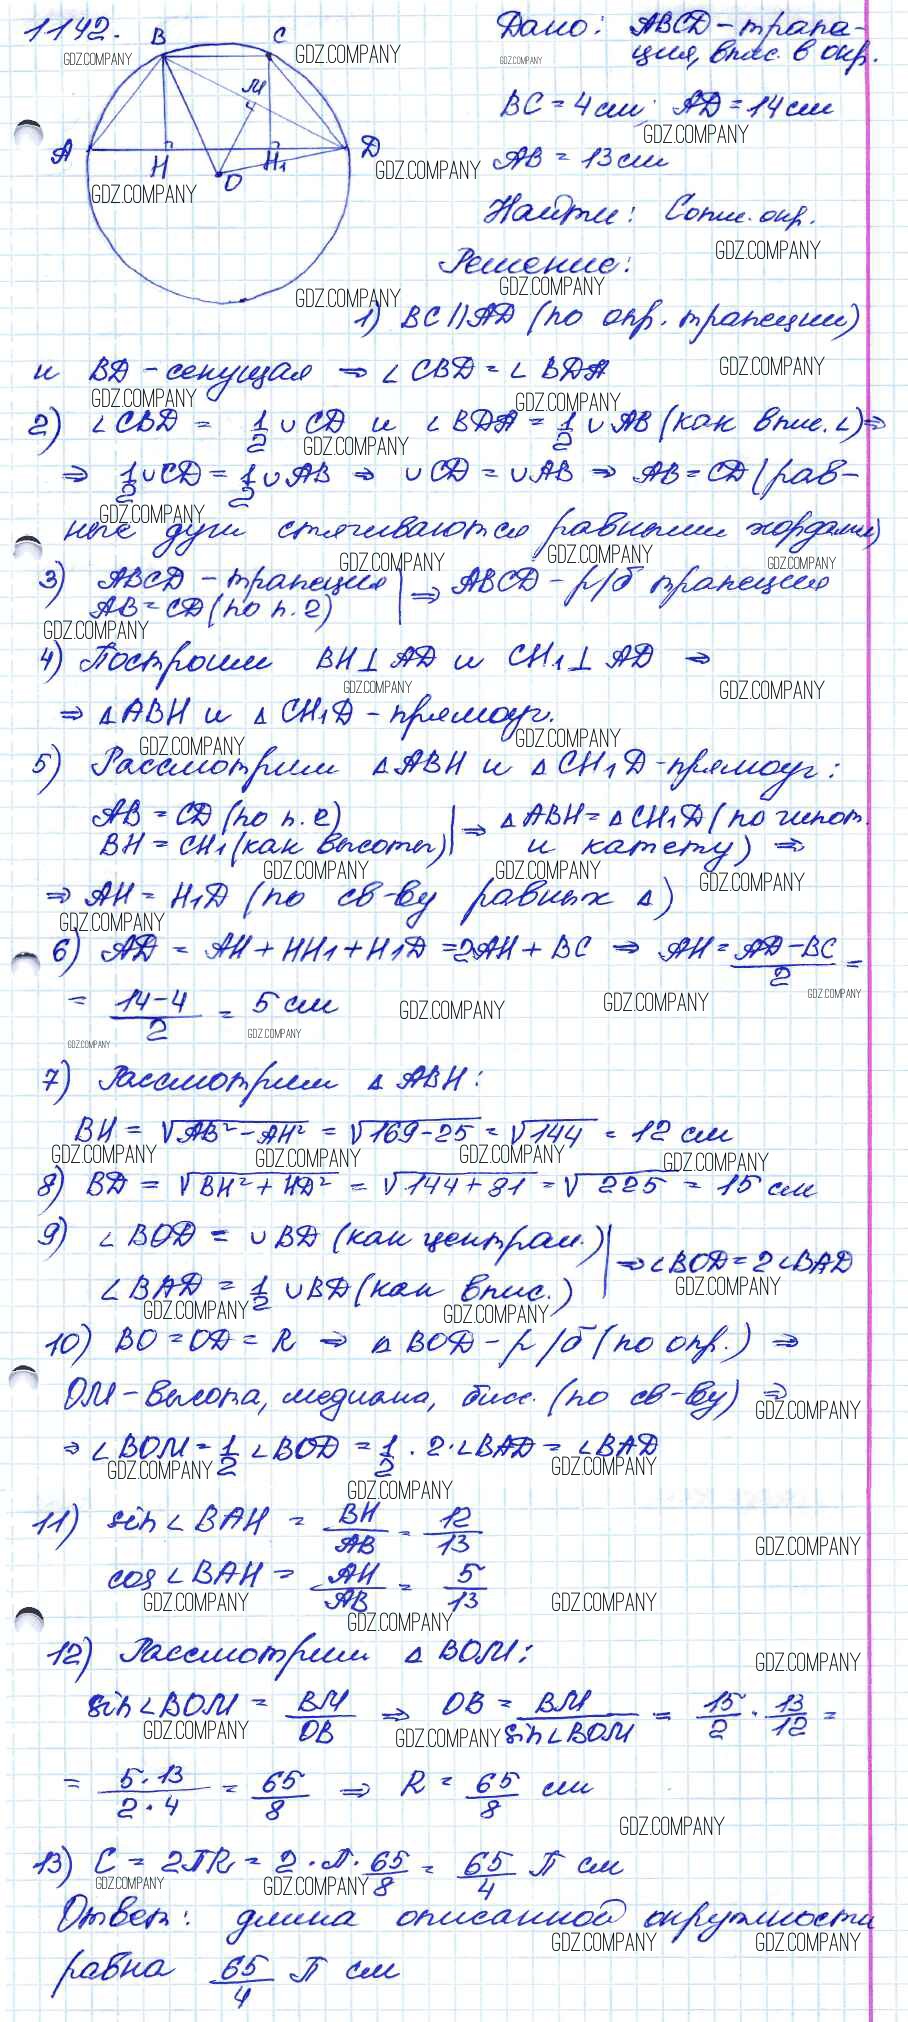 1142.
B
C
M
A
H
H₁
D
O
Дано: ABCD - трапе-
ция, впис. в окр.
BC = 4 см; AD = 14 см
AB = 13 см
Найти: Cопис. окр.
Решение:
1) BC || AD (по опр. трапеции)
и BD - секущая ⇒ ∠CBD = ∠BDA
2) ∠CBD = 1/2 ∪CD и ∠BDA = 1/2 ∪AB (как впис. ∠) ⇒
⇒ 1/2 ∪CD = 1/2 ∪AB ⇒ ∪CD = ∪AB ⇒ AB = CD (рав-
ные дуги стягиваются равными хордами)
3) ABCD - трапеция
AB = CD (по п. 2) | ⇒ ABCD - р/б трапеция
4) Построим BH ⊥ AD и CH₁ ⊥ AD ⇒
⇒ △ABH и △CH₁D - прямоуг.
5) Рассмотрим △ABH и △CH₁D - прямоуг:
AB = CD (по п. 2)
BH = CH₁ (как высоты) | ⇒ △ABH = △CH₁D (по гипот.
и катету) ⇒
⇒ AH = H₁D (по св-ву равных △)
6) AD = AH + HH₁ + H₁D = 2AH + BC ⇒ AH = (AD - BC)/2 =
= (14 - 4)/2 = 5 см
7) Рассмотрим △ABH:
BH = √(AB² - AH²) = √(169 - 25) = √144 = 12 см
8) BD = √(BH² + HD²) = √(144 + 81) = √225 = 15 см
9) ∠BOD = ∪BD (как централ.)
∠BAD = 1/2 ∪BD (как впис.) | ⇒ ∠BOD = 2∠BAD
10) BO = OD = R ⇒ △BOD - р/б (по опр.) ⇒
OM - высота, медиана, бисс. (по св-ву) ⇒
⇒ ∠BOM = 1/2 ∠BOD = 1/2 · 2 · ∠BAD = ∠BAD
11) sin∠BAH = BH/AB = 12/13
cos∠BAH = AH/AB = 5/13
12) Рассмотрим △BOM:
sin∠BOM = BM/OB ⇒ OB = BM/sin∠BOM = 15/2 · 13/12 =
= (5 · 13)/(2 · 4) = 65/8 ⇒ R = 65/8 см
13) C = 2πR = 2 · π · 65/8 = 65/4 π см
Ответ: длина описанной окружности
равна 65/4 π см
GDZ.COMPANY